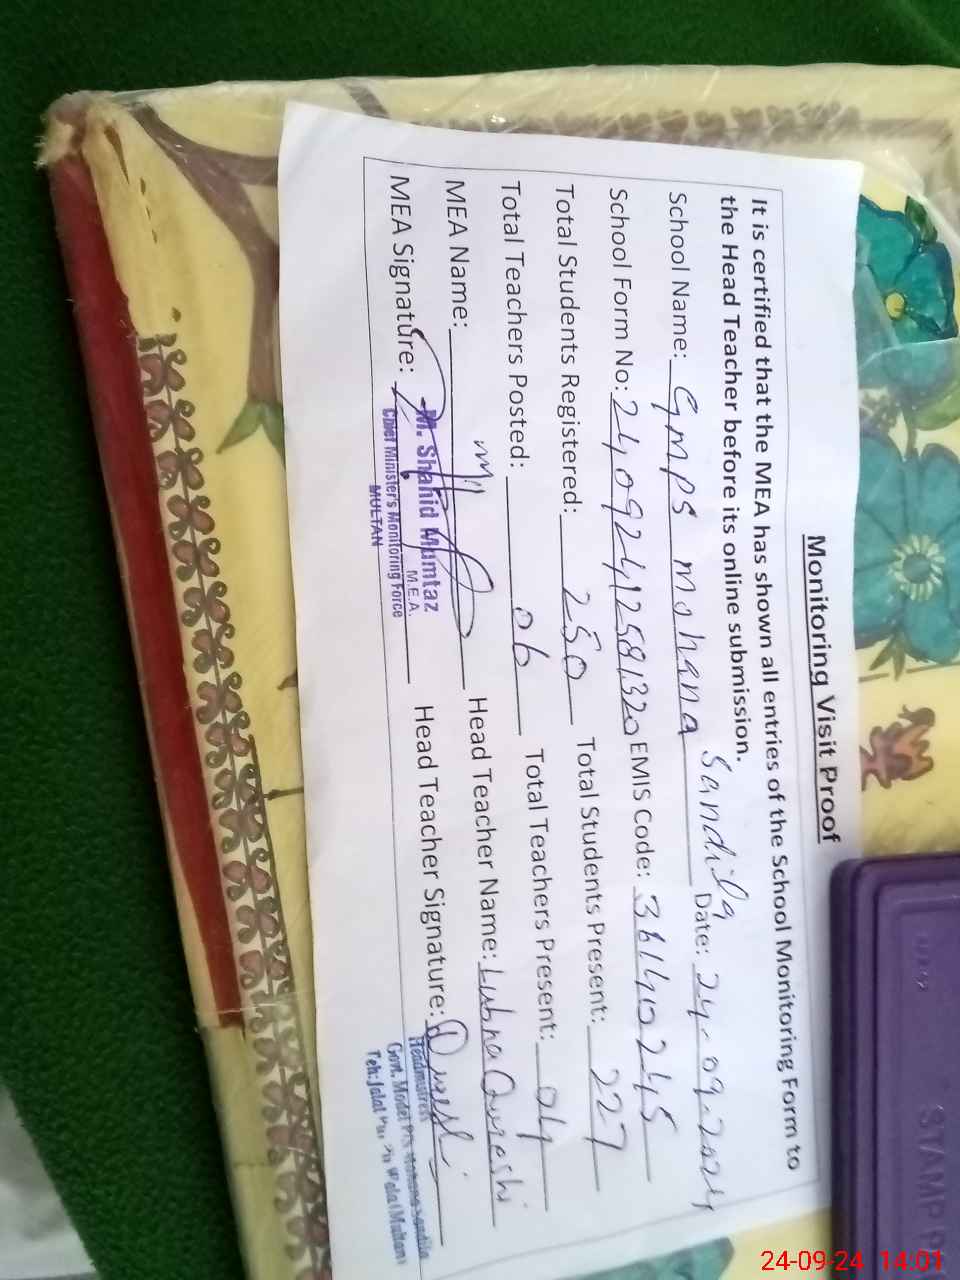 Monitoring Visit Proof
It is certified that the MEA has shown all entries of the School Monitoring Form to
the Head Teacher before its online submission.
School Name: Gmps mohana Sandila Date: 24-09-2024
School Form No: EMIS Code: 36140245
Total Students Registered: 250 Total Students Present: 227
Total Teachers Posted: 06 Total Teachers Present: 04
MEA Name: Head Teacher Name: Lubna Qureshi
MEA Signature: Head Teacher Signature:
M. Shahid Mumtaz
M.E.A.
Chief Minister's Monitoring Force
MULTAN
Headmistress
Govt. Model
Teh: Jalal Wala (Multan)
STAMP
24-09-24 14:01